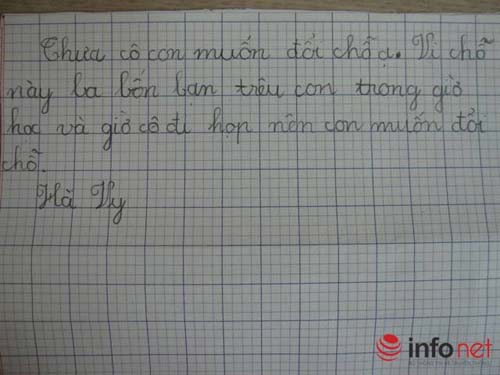 Thưa cô con muốn đổi chỗ ạ. Vì chỗ
này ba bốn bạn trêu con trong giờ
học và giờ cô đi họp nên con muốn đổi
chỗ.
Hà Vy
infonet